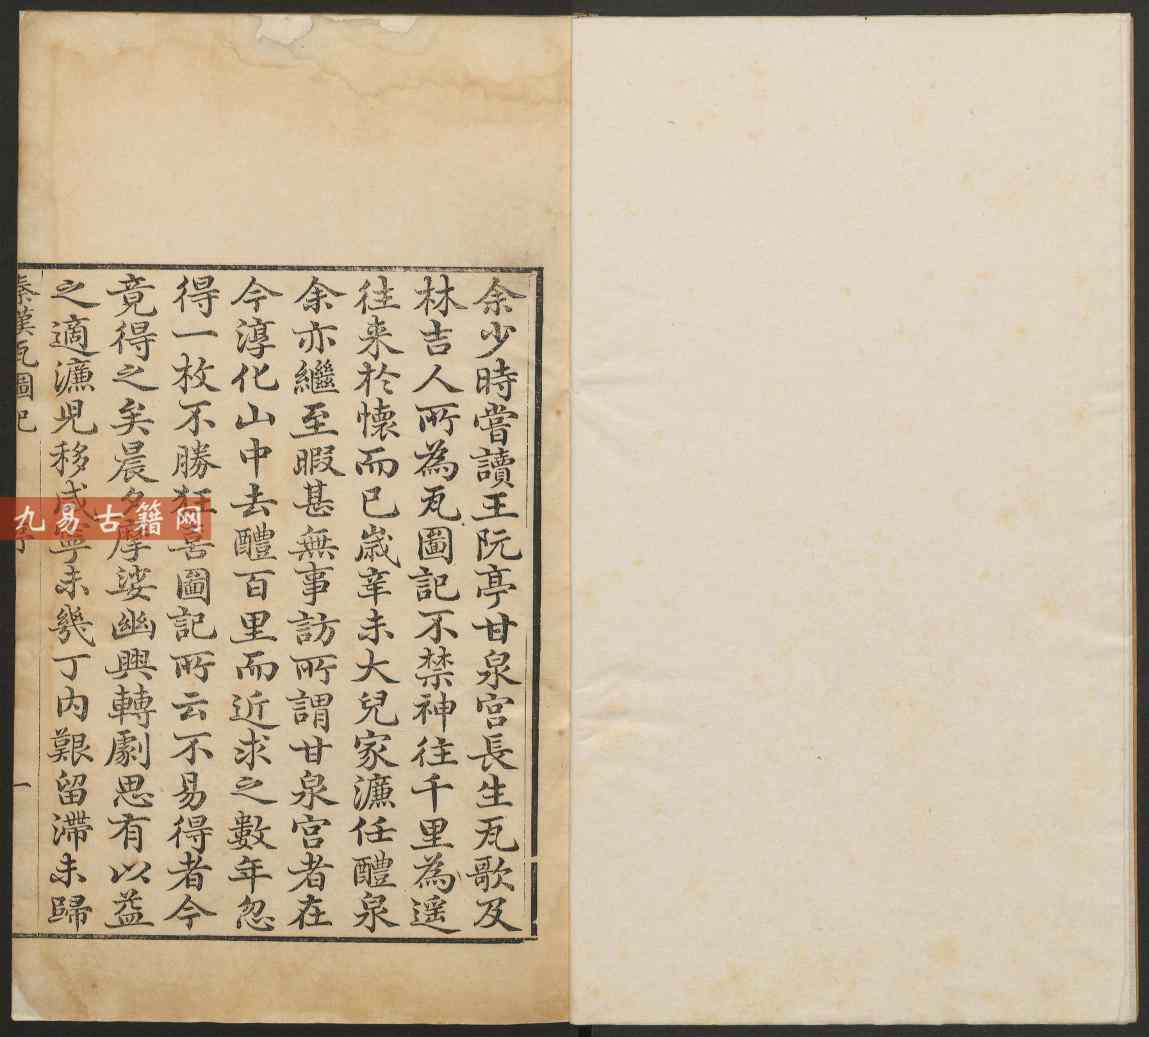 余少時嘗讀王阮亭甘泉宮長生瓦歌及
林吉人所為瓦圖記不禁神往千里為遥
往来於懷而已歲辛未大兒家濂任醴泉
余亦繼至暇甚無事訪所謂甘泉宮者在
今淳化山中去醴百里而近求之數年忽
得一枚不勝狂喜圖記所云不易得者今
竟得之矣晨夕摩娑幽興轉劇思有以益
之適濂児移咸寧未幾丁内艱留滯未歸
秦漢瓦圖記
序
一
九易古籍网